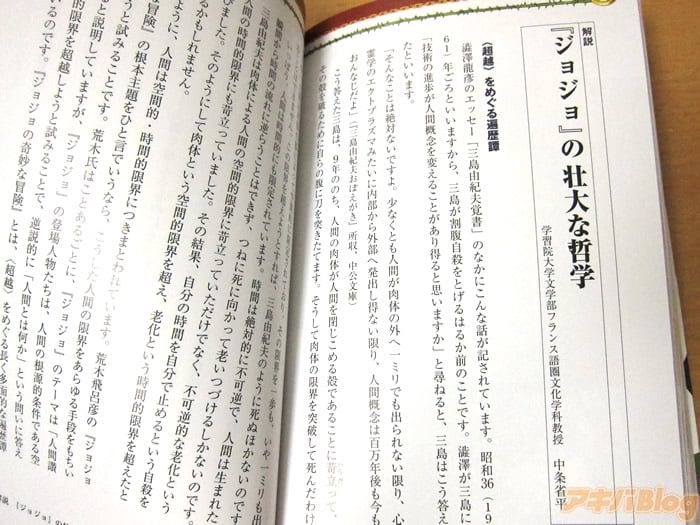 解説
『ジョジョ』の壮大な哲学
学習院大学文学部フランス語圏文化学科教授　中条省平
〈超越〉をめぐる遍歴譚
澁澤龍彦のエッセー「三島由紀夫覚書」のなかにこんな話が記されています。昭和36（19
61）年ごろといいますから、三島が割腹自殺をとげるはるか前のことです。澁澤が三島に
「技術の進歩が人間概念を変えることがあり得ると思いますか」と尋ねると、三島はこう答え
たといいます。
「そんなことは絶対ないですよ。少なくとも人間が肉体の外へ一ミリでも出られない限り、心
霊学のエクトプラズマみたいに内部から外部へ発出し得ない限り、人間概念は百万年後も今も
おんなじだよ」（「三島由紀夫おぼえがき」所収、中公文庫）
こう答えた三島は、9年ののち、人間の肉体が人間を閉じこめる殻であることに苛立って、
その殻を破るために自らの腹に刀を突きたてます。そうして肉体の限界を突破して死んだわけ
限定されており、その限界を一歩も、いや一ミリも出
この限界を超えようとすれば、三島由紀夫のように死ぬほかないので
人間は時間的にも限定されています。時間は絶対的に不可逆で、人間は生まれた
瞬間から時間の流れに逆らうことはできず、つねに死に向かって老いつづけるしかないのです。
三島由紀夫は肉体による人間の空間的限界に苛立っていただけでなく、不可逆的な老化という
人間の時間的限界にも苛立っていました。その結果、自分の時間を自分で止めるという自殺を
びました。そのようにして肉体という空間的限界を超え、老化という時間的限界を超えたと
るかもしれません。
ように、人間は空間的・時間的限界につきまとわれています。荒木飛呂彦の『ジョジョ
な冒険』の根本主題をひと言でいうなら、こうした人間の限界をあらゆる手段をもちい
うと試みることです。荒木氏はことあるごとに、『ジョジョ』のテーマは「人間讃
と説明していますが、『ジョジョ』の登場人物たちは、人間の根源的条件である空
的限界を超越しようと試みることで、逆説的に「人間とは何か」という問いに答え
いるのです。『ジョジョの奇妙な冒険』とは、〈超越〉をめぐる長く多面的な遍歴譚
解説　『ジョジョ』の
アキバBlog